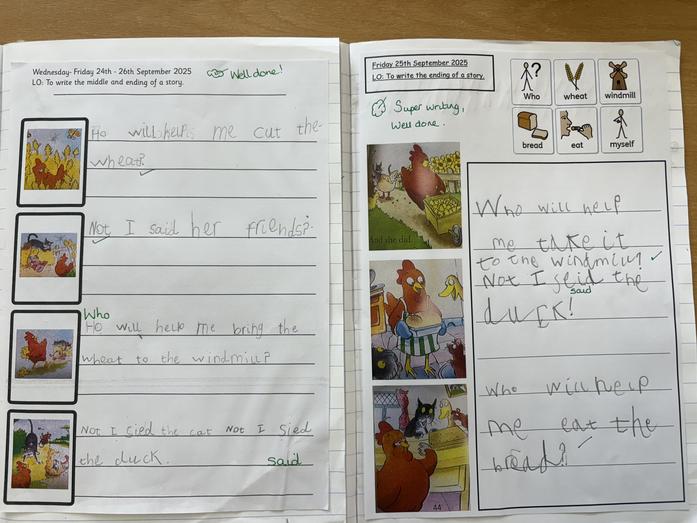 Wednesday- Friday 24th - 26th September 2025
LO: To write the middle and ending of a story.
Well done!
Ho will help me cut the
wheat?
Not I said her friends?
Who
Ho will help me bring the
wheat to the windmill?
Not I sied the cat Not I sied
the duck.
said
Friday 25th September 2025
LO: To write the ending of a story.
Super writing,
Well done.
Who
wheat
windmill
bread
eat
myself
And she did.
44
Who will help
me take it
to the windmill?
Not I seid the
said
duck!
Who will help
me eat the
bread?